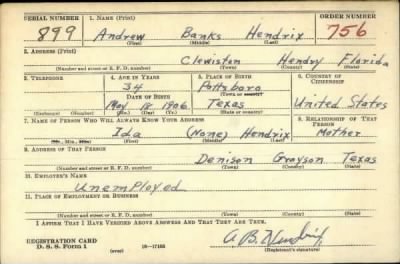 SERIAL NUMBER 1. NAME (Print) ORDER NUMBER
899 Andrew Banks Hendrix 756
(First) (Middle) (Last)
2. ADDRESS (Print)
Clewiston Hendry Florida
(Number and street or R. F. D. number) (Town) (County) (State)
3. TELEPHONE 4. AGE IN YEARS 5. PLACE OF BIRTH 6. COUNTRY OF CITIZENSHIP
34 Pottsboro
DATE OF BIRTH (Town or county)
May 18, 1906 Texas United States
(Exchange) (Number) (Mo.) (Day) (Yr.) (State or country)
7. NAME OF PERSON WHO WILL ALWAYS KNOW YOUR ADDRESS 8. RELATIONSHIP OF THAT PERSON
Ida (None) Hendrix Mother
(Mr., Mrs., Miss) (First) (Middle) (Last)
9. ADDRESS OF THAT PERSON
Denison Grayson Texas
(Number and street or R. F. D. number) (Town) (County) (State)
10. EMPLOYER'S NAME
Unemployed
11. PLACE OF EMPLOYMENT OR BUSINESS
(Number and street or R. F. D. number) (Town) (County) (State)
I AFFIRM THAT I HAVE VERIFIED ABOVE ANSWERS AND THAT THEY ARE TRUE.
REGISTRATION CARD
D. S. S. Form 1 (over) 16-17105 A B Hendrix
(Registrant's signature)